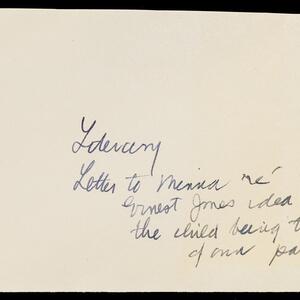 Literary
Letter to Minna "re"
Ernest Jones idea
the child being t
of our pa